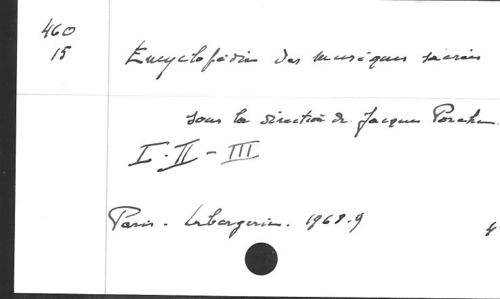 460
15
Encyclopédie des musiques sacrées
sous la direction de Jacques Porte
I-II-III
Paris. Labergerie. 1968-9
4